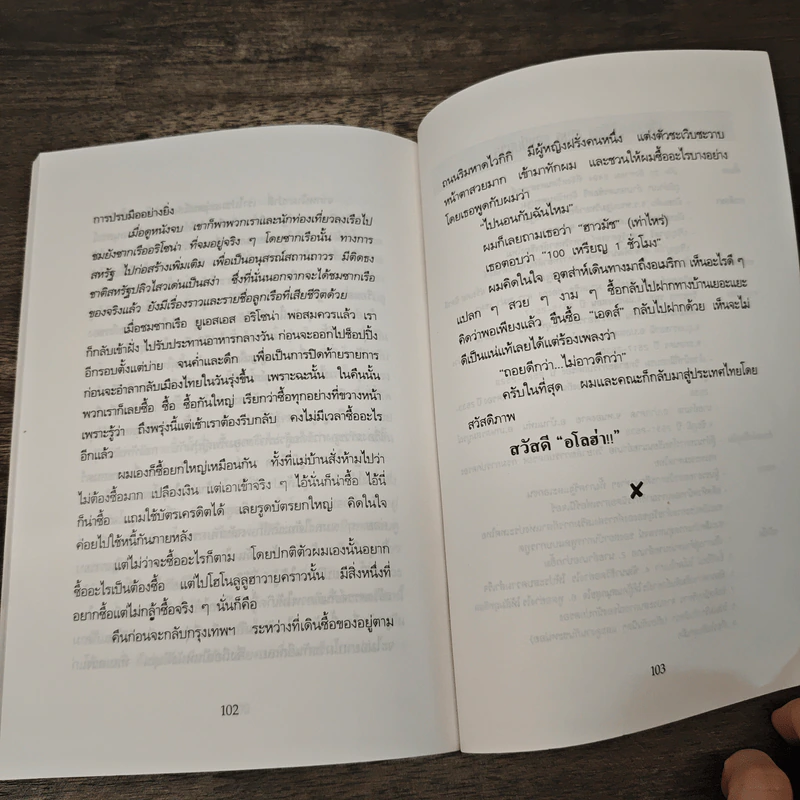 การปรบมืออย่างยิ่ง
เมื่อดูหนังจบ เขาก็พาพวกเราและนักท่องเที่ยวลงเรือไป
ชมยังซากเรืออริโซน่า ที่จมอยู่จริง ๆ โดยซากเรือนั้น ทางการ
สหรัฐ ไปก่อสร้างเพิ่มเติม เพื่อเป็นอนุสรณ์สถานถาวร มีติดธง
ชาติสหรัฐปลิวไสวเด่นเป็นสง่า ซึ่งที่นั่นนอกจากจะได้ชมซากเรือ
ของจริงแล้ว ยังมีเรื่องราวและรายชื่อลูกเรือที่เสียชีวิตด้วย
เมื่อชมซากเรือ ยูเอสเอส อริโซน่า พอสมควรแล้ว เรา
ก็กลับเข้าฝั่ง ไปรับประทานอาหารกลางวัน ก่อนจะออกไปช็อปปิ้ง
อีกรอบตั้งแต่บ่าย จนค่ำและดึก เพื่อเป็นการปิดท้ายรายการ
ก่อนจะอำลากลับเมืองไทยในวันรุ่งขึ้น เพราะฉะนั้น ในคืนนั้น
พวกเราก็เลยซื้อ ซื้อ ซื้อกันใหญ่ เรียกว่าซื้อทุกอย่างที่ขวางหน้า
เพราะรู้ว่า ถึงพรุ่งนี้แต่เช้าเราต้องรีบกลับ คงไม่มีเวลาซื้ออะไร
อีกแล้ว
ผมเองก็ซื้อยกใหญ่เหมือนกัน ทั้งที่แม่บ้านสั่งห้ามไปว่า
ไม่ต้องซื้อมาก เปลืองเงิน แต่เอาเข้าจริง ๆ ไอ้นั่นก็น่าซื้อ ไอ้นี่
ก็น่าซื้อ แถมใช้บัตรเครดิตได้ เลยรูดบัตรยกใหญ่ คิดในใจ
ค่อยไปใช้หนี้กันภายหลัง
แต่ไม่ว่าจะซื้ออะไรก็ตาม โดยปกติตัวผมเองนั้นอยาก
ซื้ออะไรเป็นต้องซื้อ แต่ไปโฮโนลูลูฮาวายคราวนั้น มีสิ่งหนึ่งที่
อยากซื้อแต่ไม่กล้าซื้อจริง ๆ นั่นก็คือ
คืนก่อนจะกลับกรุงเทพฯ ระหว่างที่เดินซื้อของอยู่ตาม
102
ถนนริมหาดไวกิกิ มีผู้หญิงฝรั่งคนหนึ่ง แต่งตัวชะเวิบชะวาบ
หน้าตาสวยมาก เข้ามาทักผม และชวนให้ผมซื้ออะไรบางอย่าง
โดยเธอพูดกับผมว่า
“ไปนอนกับฉันไหม”
ผมก็เลยถามเธอว่า “ฮาวมัช” (เท่าไหร่)
เธอตอบว่า “100 เหรียญ 1 ชั่วโมง”
ผมคิดในใจ อุตส่าห์เดินทางมาถึงอเมริกา เห็นอะไรดี ๆ
แปลก ๆ สวย ๆ งาม ๆ ซื้อกลับไปฝากทางบ้านเยอะแยะ
คิดว่าพอเพียงแล้ว ขืนซื้อ “เอดส์” กลับไปฝากด้วย เห็นจะไม่
ดีเป็นแน่แท้เลยได้แต่ร้องเพลงว่า
“ถอยดีกว่า...ไม่เอาดีกว่า”
ครับในที่สุด ผมและคณะก็กลับมาสู่ประเทศไทยโดย
สวัสดิภาพ
สวัสดี “อโลฮ่า!!”
103